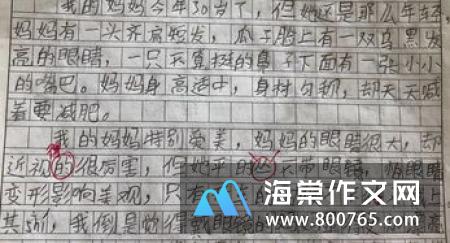 我的妈妈今年30岁了，但她还是那么年轻，
妈妈有一头齐肩短发，瓜子脸上有一双乌黑发
亮的眼睛，一只不算挺的鼻子下面有一张小小
的嘴巴。妈妈身高适中，身材匀称，却天天喊
着要减肥。
我的妈妈特别爱美，妈妈的眼睛很大，却
近视的很厉害，但她平时 不带眼镜，
变形影响美观，只有
其 ，我倒是觉得戴眼镜的
海棠作文网
www.800765.com